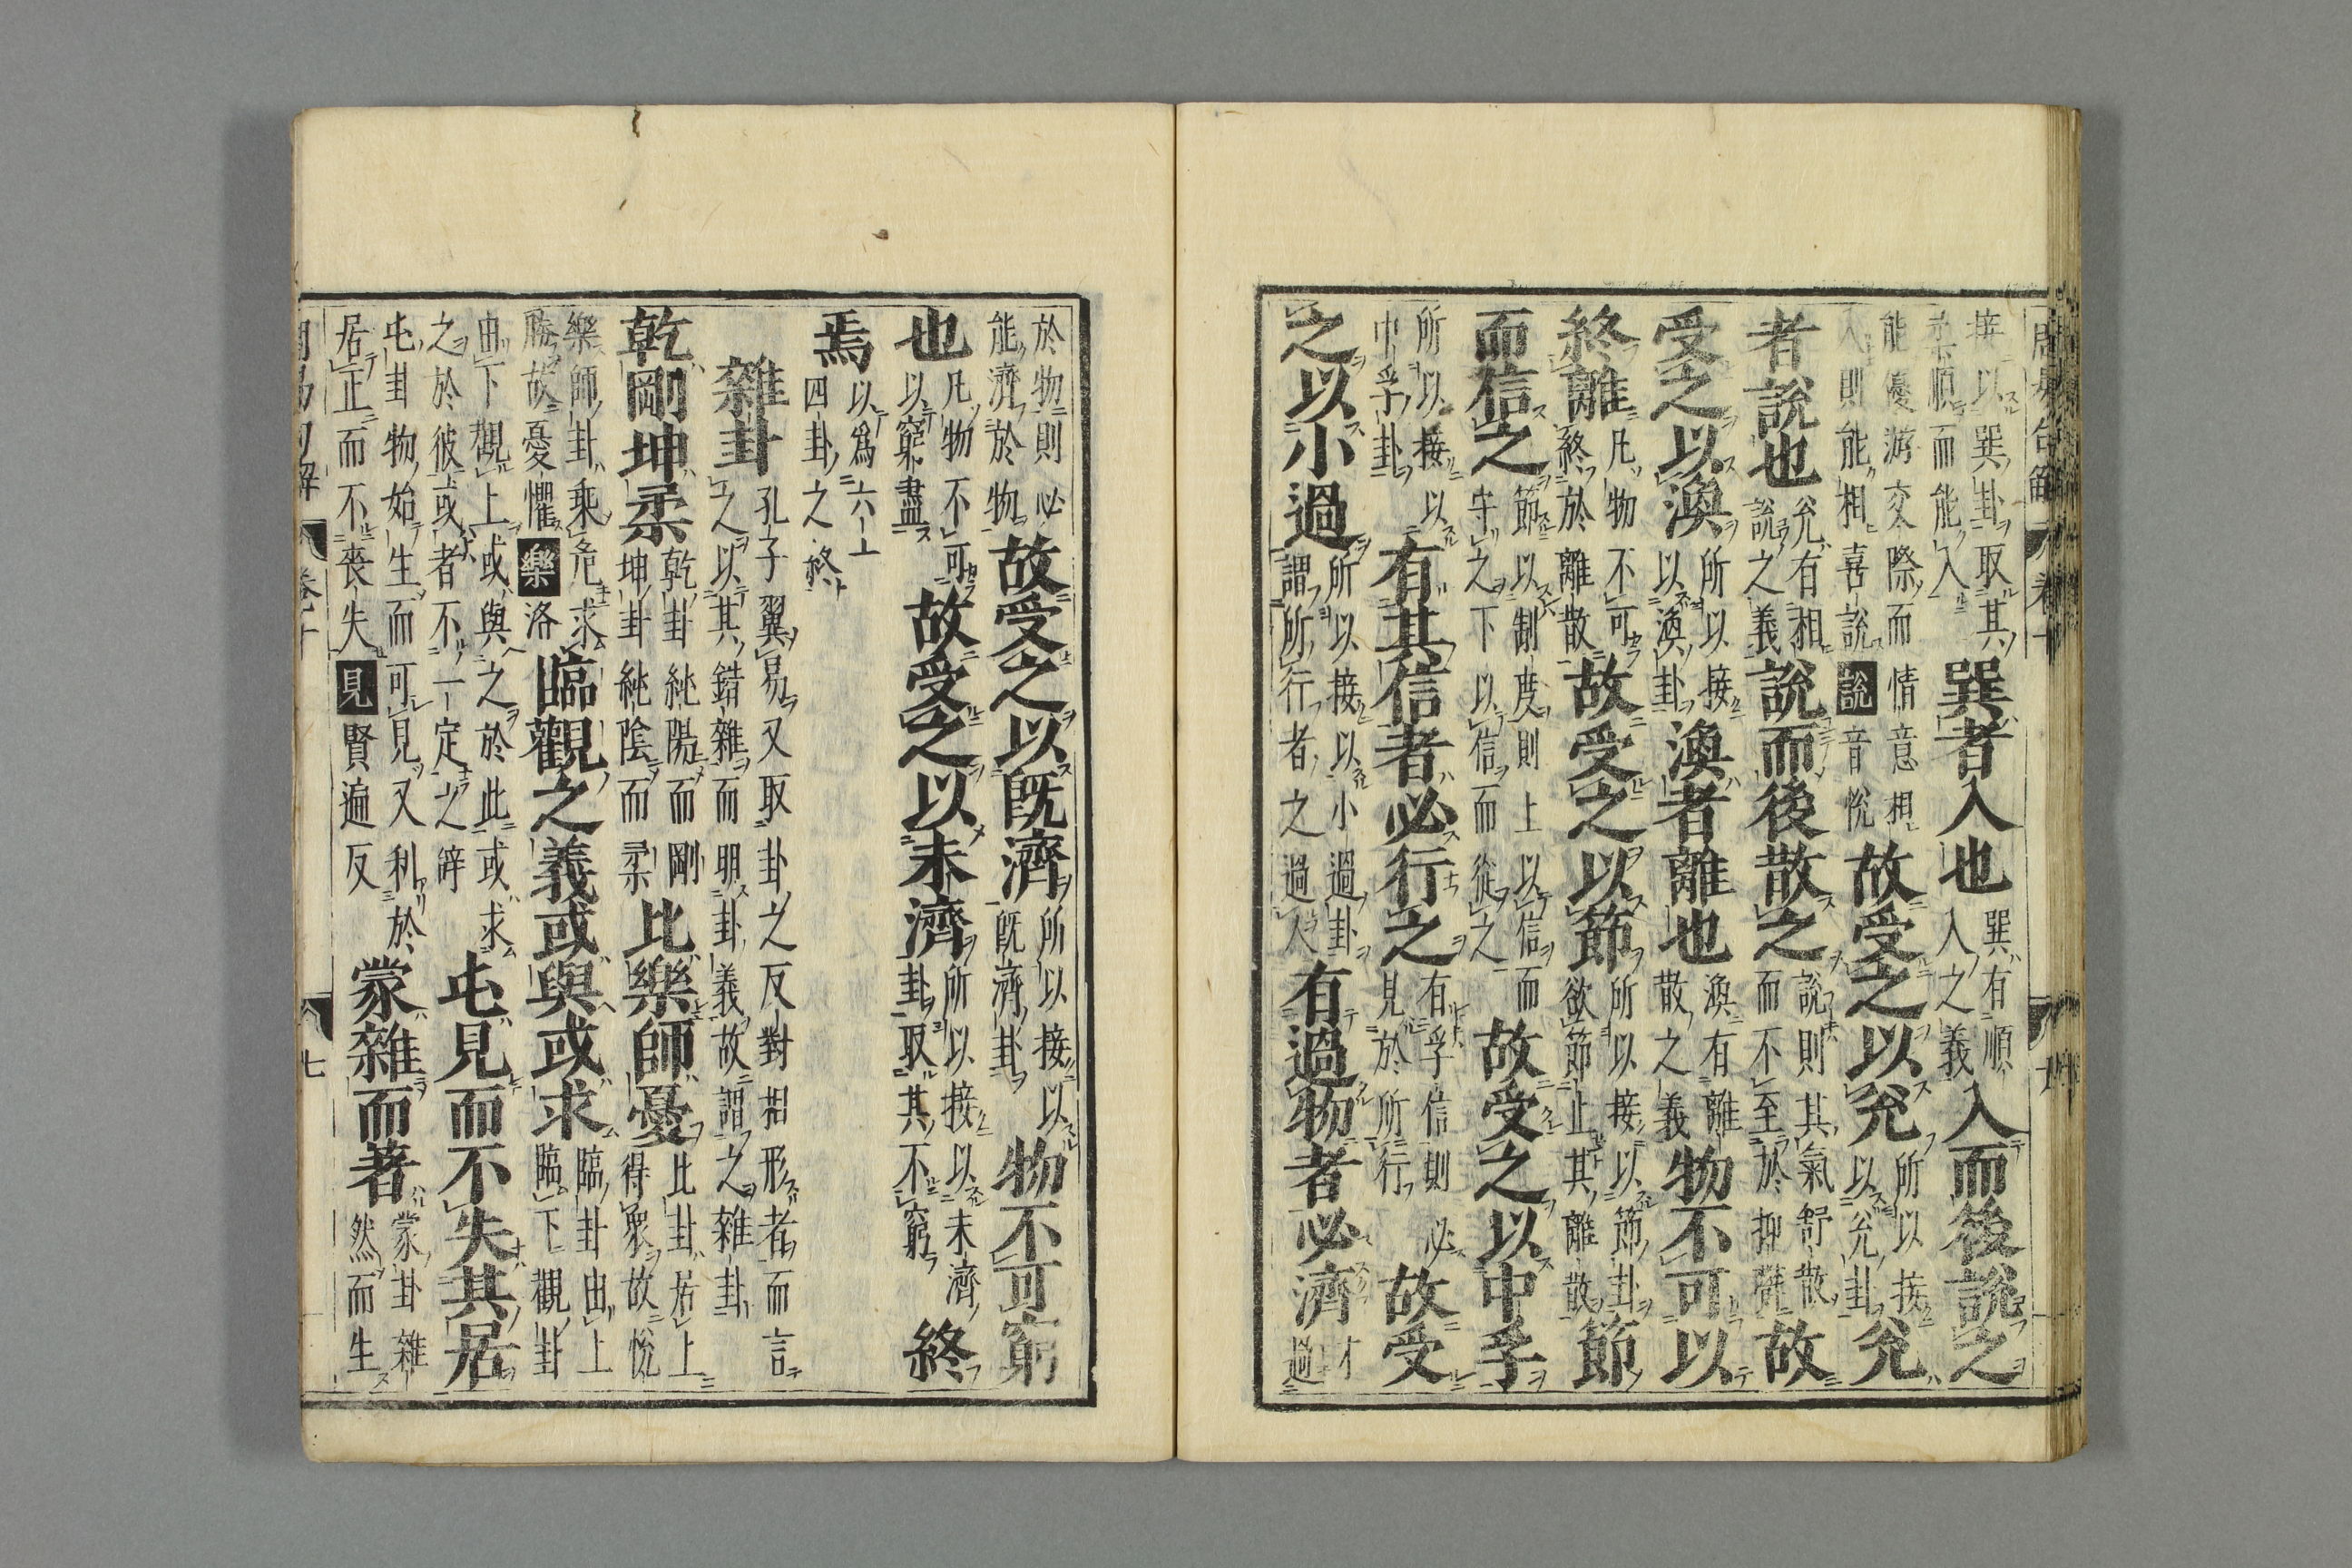 接以巽卦取其 巽者入也 巽有順入之義 入而後說之
柔順而能入
能優游交際而情意相
入則能相喜說 說 音悅 故受之以兌 所以接以兌卦 兌
者說也 兌有相說之義 說而後散之 說則其氣舒散而不至於抑鬱 故
受之以渙 所以接以渙卦 渙者離也 渙有離散之義 物不可以
終離 凡物不可終於離散 故受之以節 所以接以節卦欲節止其離散 節
而信之 節以制度則上以信而守之下以信而從之 故受之以中孚
所以接以中孚卦 有其信者必行之 有孚信則必見於所行 故受
之以小過 所以接以小過卦謂所行者之過人 有過物者必濟 才過
於物則必能濟於物 故受之以既濟 所以接以既濟卦 物不可窮
也 凡物不可以窮盡 故受之以未濟 所以接以未濟卦取其不窮 終
焉 以為六十四卦之終
雜卦 孔子翼易又取卦之反對相形者而言之以其錯雜而明卦義故謂之雜卦
乾剛坤柔 乾卦純陽而剛坤卦純陰而柔 比樂師憂 比卦居上得眾故悅
樂師卦乘危求勝故憂懼 樂 洛 臨觀之義或與或求 臨卦由上臨下觀卦
由下觀上或與之於此或求之於彼或者不一定之辭 屯見而不失其居
屯卦物始生而可見又利於居正而不喪失 見 賢遍反 蒙雜而著 蒙卦雜然而生
卷十
七